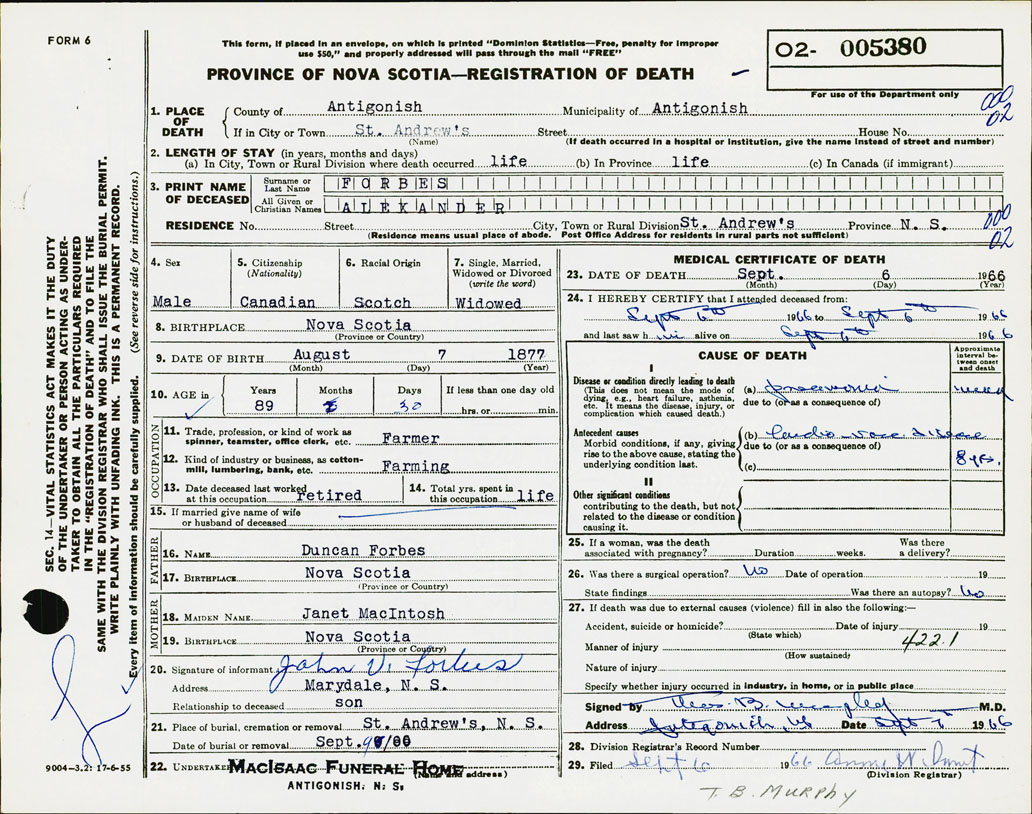 FORM 6
This form, if placed in an envelope, on which is printed "Dominion Statistics—Free, penalty for improper
use $50," and properly addressed will pass through the mail "FREE"
PROVINCE OF NOVA SCOTIA—REGISTRATION OF DEATH
02- 005380
For use of the Department only
1. PLACE OF DEATH
County of Antigonish Municipality of Antigonish
000
02
If in City or Town St. Andrew's Street House No.
(Name) (If death occurred in a hospital or institution, give the name instead of street and number)
2. LENGTH OF STAY (in years, months and days)
(a) In City, Town or Rural Division where death occurred life (b) In Province life (c) In Canada (if immigrant)
3. PRINT NAME OF DECEASED
Surname or Last Name FORBES
All Given or Christian Names ALEXANDER
RESIDENCE No. Street City, Town or Rural Division St. Andrew's Province N. S.
(Residence means usual place of abode. Post Office Address for residents in rural parts not sufficient)
000
02
4. Sex
Male
5. Citizenship
(Nationality)
Canadian
6. Racial Origin
Scotch
7. Single, Married,
Widowed or Divorced
(write the word)
Widowed
8. BIRTHPLACE Nova Scotia
(Province or Country)
9. DATE OF BIRTH August 7 1877
(Month) (Day) (Year)
10. AGE in
Years Months Days If less than one day old
89 30 hrs. or min.
OCCUPATION
11. Trade, profession, or kind of work as
spinner, teamster, office clerk, etc. Farmer
12. Kind of industry or business, as cotton-
mill, lumbering, bank, etc. Farming
13. Date deceased last worked
at this occupation retired
14. Total yrs. spent in
this occupation life
15. If married give name of wife
or husband of deceased
FATHER
16. NAME Duncan Forbes
17. BIRTHPLACE Nova Scotia
(Province or Country)
MOTHER
18. MAIDEN NAME Janet MacIntosh
19. BIRTHPLACE Nova Scotia
(Province or Country)
20. Signature of informant John V. Forbes
Address Marydale, N. S.
Relationship to deceased son
21. Place of burial, cremation or removal St. Andrew's, N. S.
Date of burial or removal Sept.
22. UNDERTAKER MACISAAC FUNERAL HOME
(Name and address)
ANTIGONISH, N. S.
MEDICAL CERTIFICATE OF DEATH
23. DATE OF DEATH Sept. 6 1966
(Month) (Day) (Year)
24. I HEREBY CERTIFY that I attended deceased from:
Sept 6th 1966 to Sept 6th 1966
and last saw h im alive on Sept 6th 1966
CAUSE OF DEATH
Approximate
interval be-
tween onset
and death
I
Disease or condition directly leading to death
(This does not mean the mode of
dying, e.g., heart failure, asthenia,
etc. It means the disease, injury, or
complication which caused death.)
(a) pneumonia week
due to (or as a consequence of)
Antecedent causes
Morbid conditions, if any, giving
rise to the above cause, stating the
underlying condition last.
(b) Cardio vasc disease
due to (or as a consequence of)
8 yrs.
(c)
II
Other significant conditions
contributing to the death, but not
related to the disease or condition
causing it.
25. If a woman, was the death Was there
associated with pregnancy? Duration weeks. a delivery?
26. Was there a surgical operation? No Date of operation 19
State findings Was there an autopsy? No
27. If death was due to external causes (violence) fill in also the following:—
Accident, suicide or homicide? Date of injury 19
(State which)
Manner of injury 422.1
(How sustained)
Nature of injury
Specify whether injury occurred in industry, in home, or in public place
Signed by M.D.
Address Antigonish, NS Date Sept 1966
28. Division Registrar's Record Number
29. Filed Sept 1966
(Division Registrar)
T. B. MURPHY
SEC. 14—VITAL STATISTICS ACT MAKES IT THE DUTY
OF THE UNDERTAKER OR PERSON ACTING AS UNDER-
TAKER TO OBTAIN ALL THE PARTICULARS REQUIRED
IN THE "REGISTRATION OF DEATH" AND TO FILE THE
SAME WITH THE DIVISION REGISTRAR WHO SHALL ISSUE THE BURIAL PERMIT.
WRITE PLAINLY WITH UNFADING INK. THIS IS A PERMANENT RECORD.
Every item of information should be carefully supplied. (See reverse side for instructions.)
9004-3.2: 17-6-55